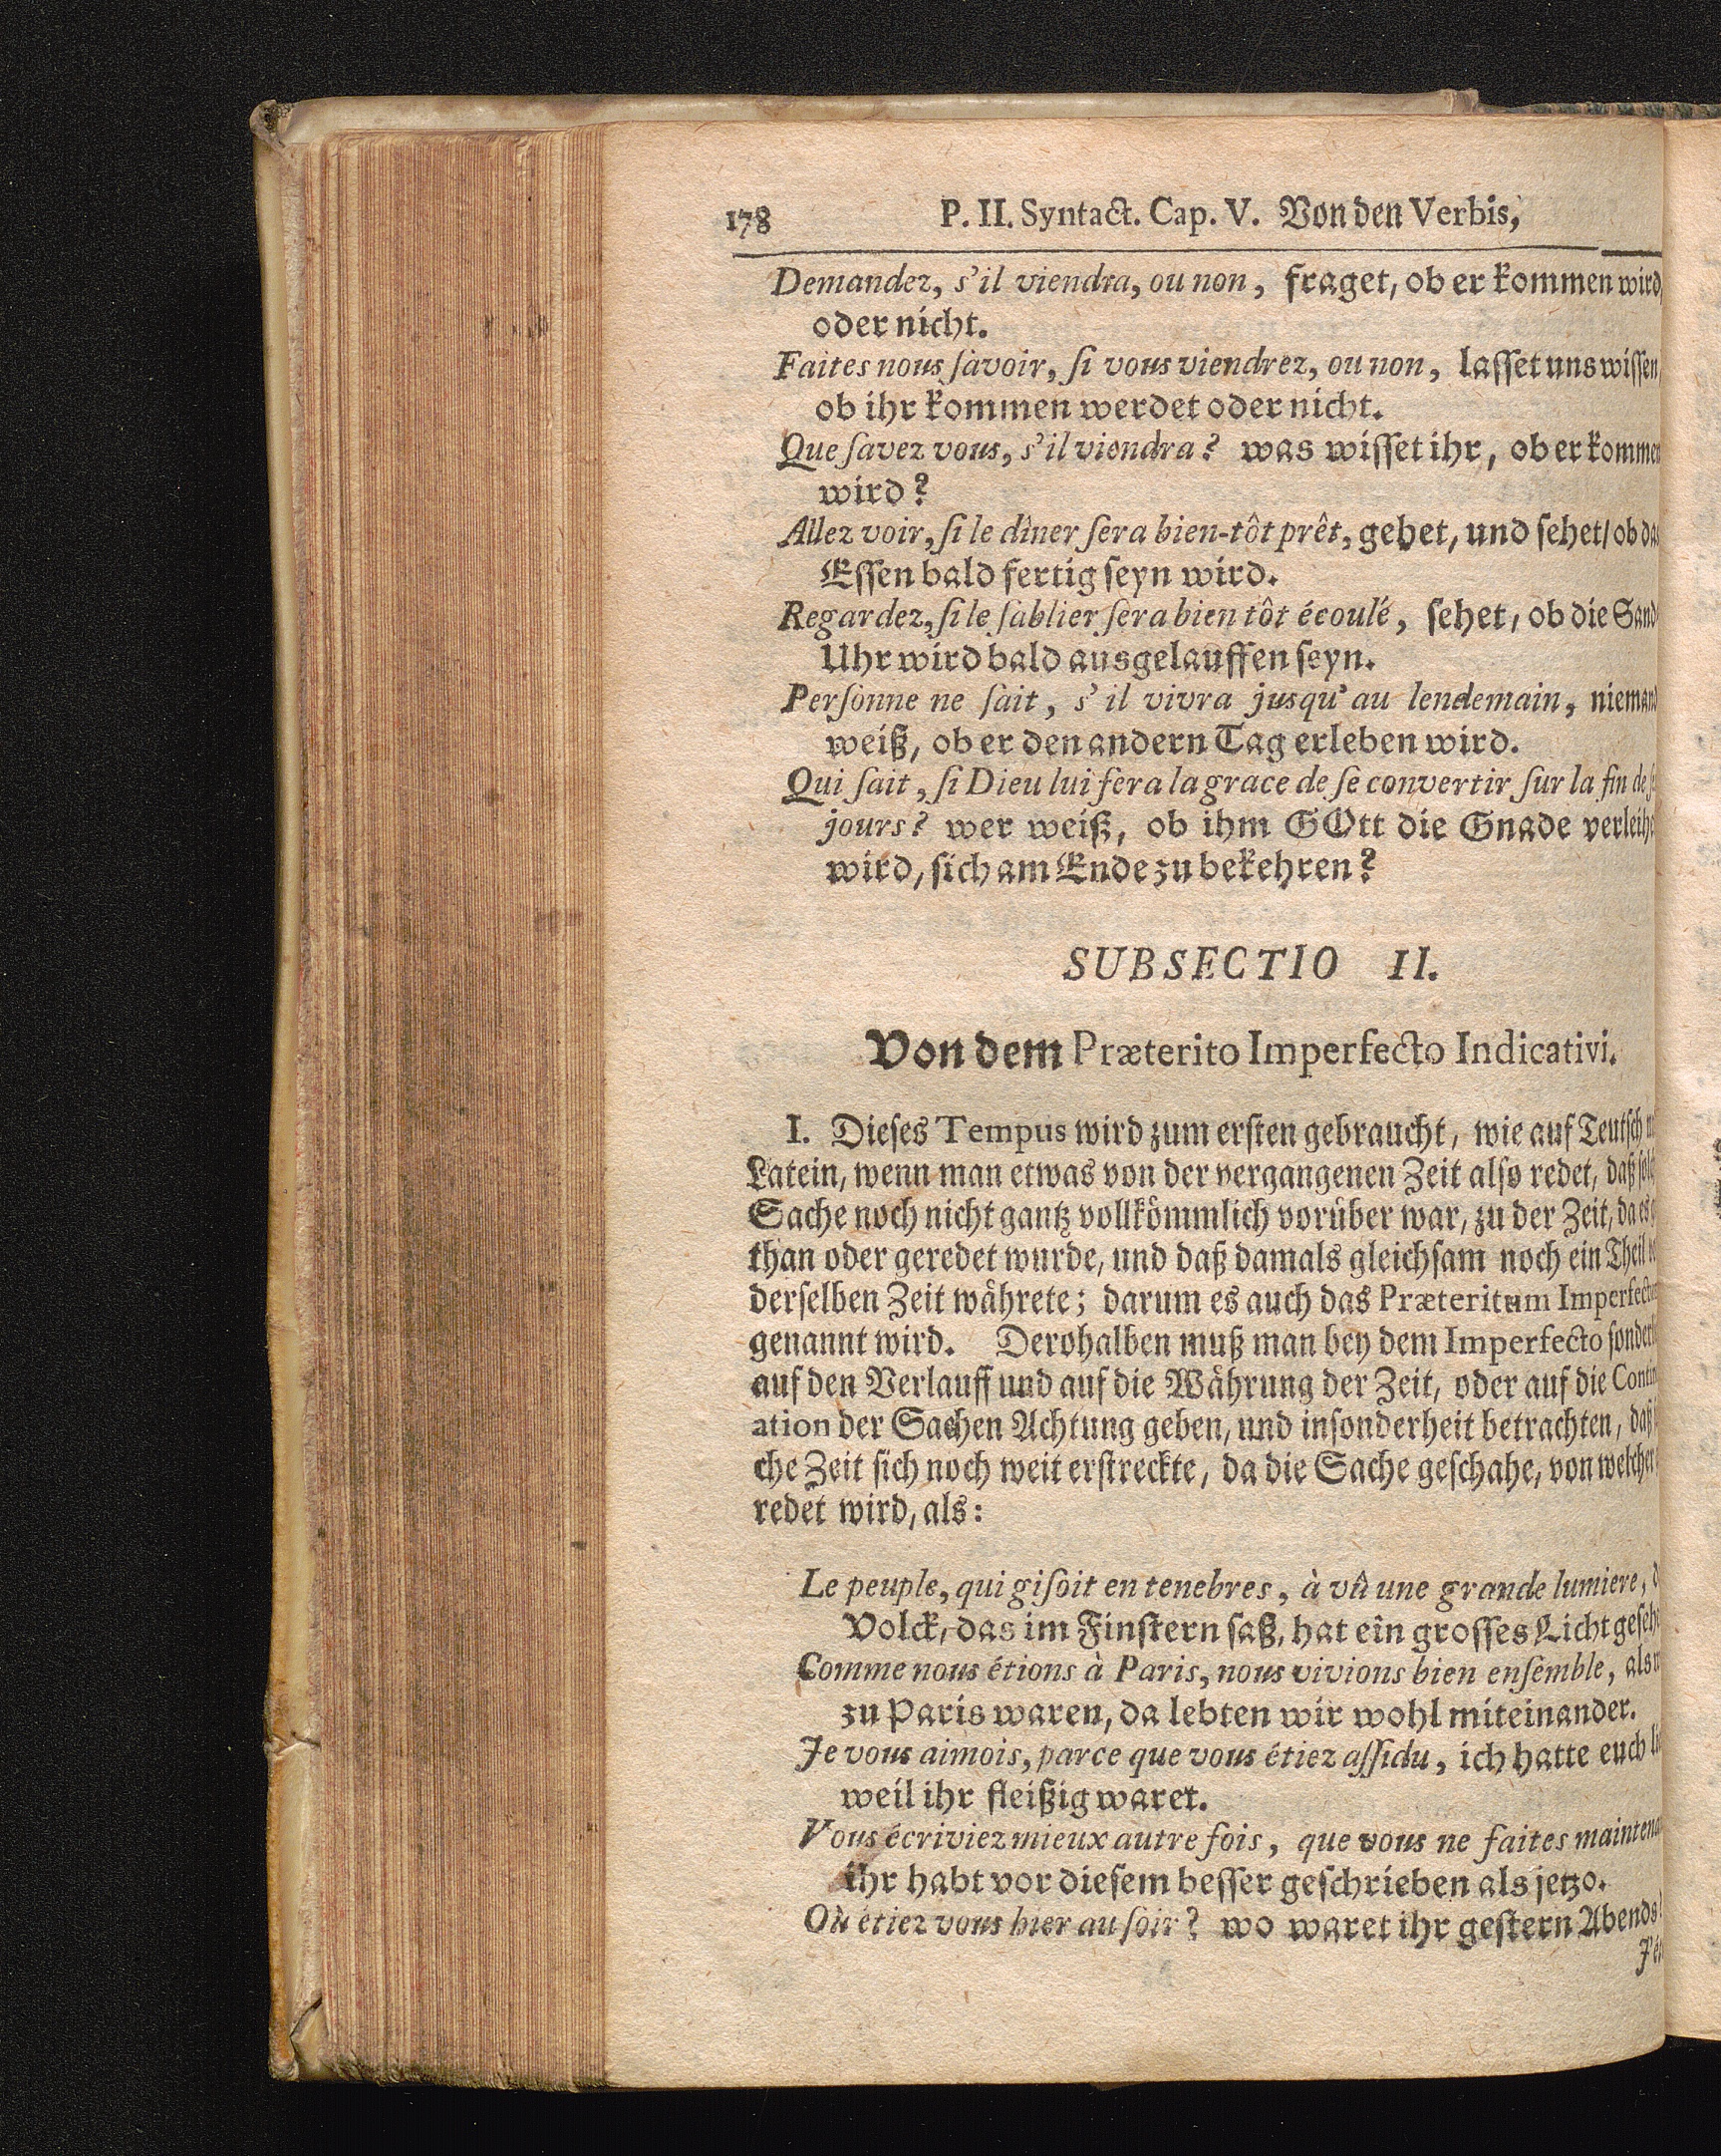 178 P. II. Syntact. Cap. V. Von den Verbis,
Demandez, s'il viendra, ou non, fraget, ob er kommen wird,
oder nicht.
Faites nous ſavoir, ſi vous viendrez, ou non, laſſet uns wiſſen,
ob ihr kommen werdet oder nicht.
Que ſavez vous, s'il viendra? was wiſſet ihr, ob er kommen
wird?
Allez voir, ſi le dîner ſera bien-tôt prêt, gehet, und ſehet/ ob das
Eſſen bald fertig ſeyn wird.
Regardez, ſi le ſablier ſera bien tôt écoulé, ſehet, ob die Sand-
Uhr wird bald ausgelauffen ſeyn.
Perſonne ne ſait, s'il vivra jusqu'au lendemain, niemand
weiß, ob er den andern Tag erleben wird.
Qui ſait, ſi Dieu lui fera la grace de ſe convertir ſur la fin de
jours? wer weiß, ob ihm GOtt die Gnade verleihe
wird, ſich am Ende zu bekehren?
SUBSECTIO II.
Von dem Præterito Imperfecto Indicativi.
I. Dieſes Tempus wird zum erſten gebraucht, wie auf Teutſch
Latein, wenn man etwas von der vergangenen Zeit alſo redet, daß
Sache noch nicht gantz vollkömmlich vorüber war, zu der Zeit, da es
than oder geredet wurde, und daß damals gleichſam noch ein Theil
derſelben Zeit währete; darum es auch das Præteritum Imperfectum
genannt wird. Derohalben muß man bey dem Imperfecto ſonder
auf den Verlauff und auf die Währung der Zeit, oder auf die Contin
ation der Sachen Achtung geben, und inſonderheit betrachten, daß
che Zeit ſich noch weit erſtreckte, da die Sache geſchahe, von welcher
redet wird, als:
Le peuple, qui giſoit en tenebres, à vû une grande lumiere,
Volck, das im Finſtern ſaß, hat ein groſſes Licht geſeh
Comme nous étions à Paris, nous vivions bien enſemble, als
zu Paris waren, da lebten wir wohl miteinander.
Je vous aimois, parce que vous étiez aſſidu, ich hatte euch
weil ihr fleißig waret.
Vous écriviez mieux autre fois, que vous ne faites maintena
ihr habt vor dieſem beſſer geſchrieben als jetzo.
Où étiez vous hier au ſoir? wo waret ihr geſtern Abends?
J'ét